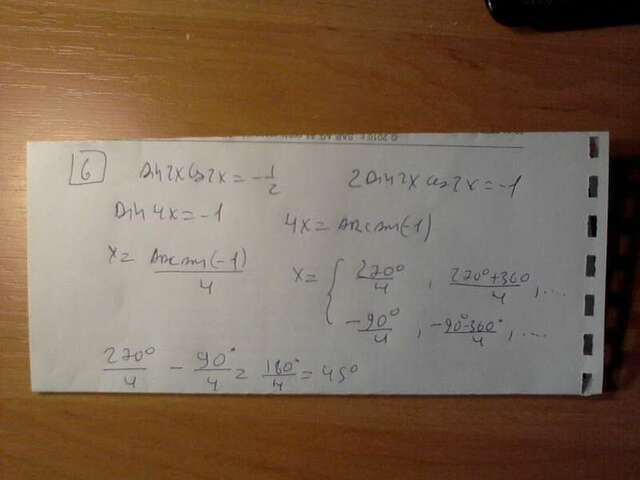 6 sin2xcos2x = -1/2 2sin2x cos2x = -1
sin4x = -1 4x = arcsin(-1)
x = arcsin(-1)/4 x = { 270°/4, 270°+360/4, ....
-90°/4, -90°-360°/4, ....
270°/4 - 90°/4 = 180°/4 = 45°